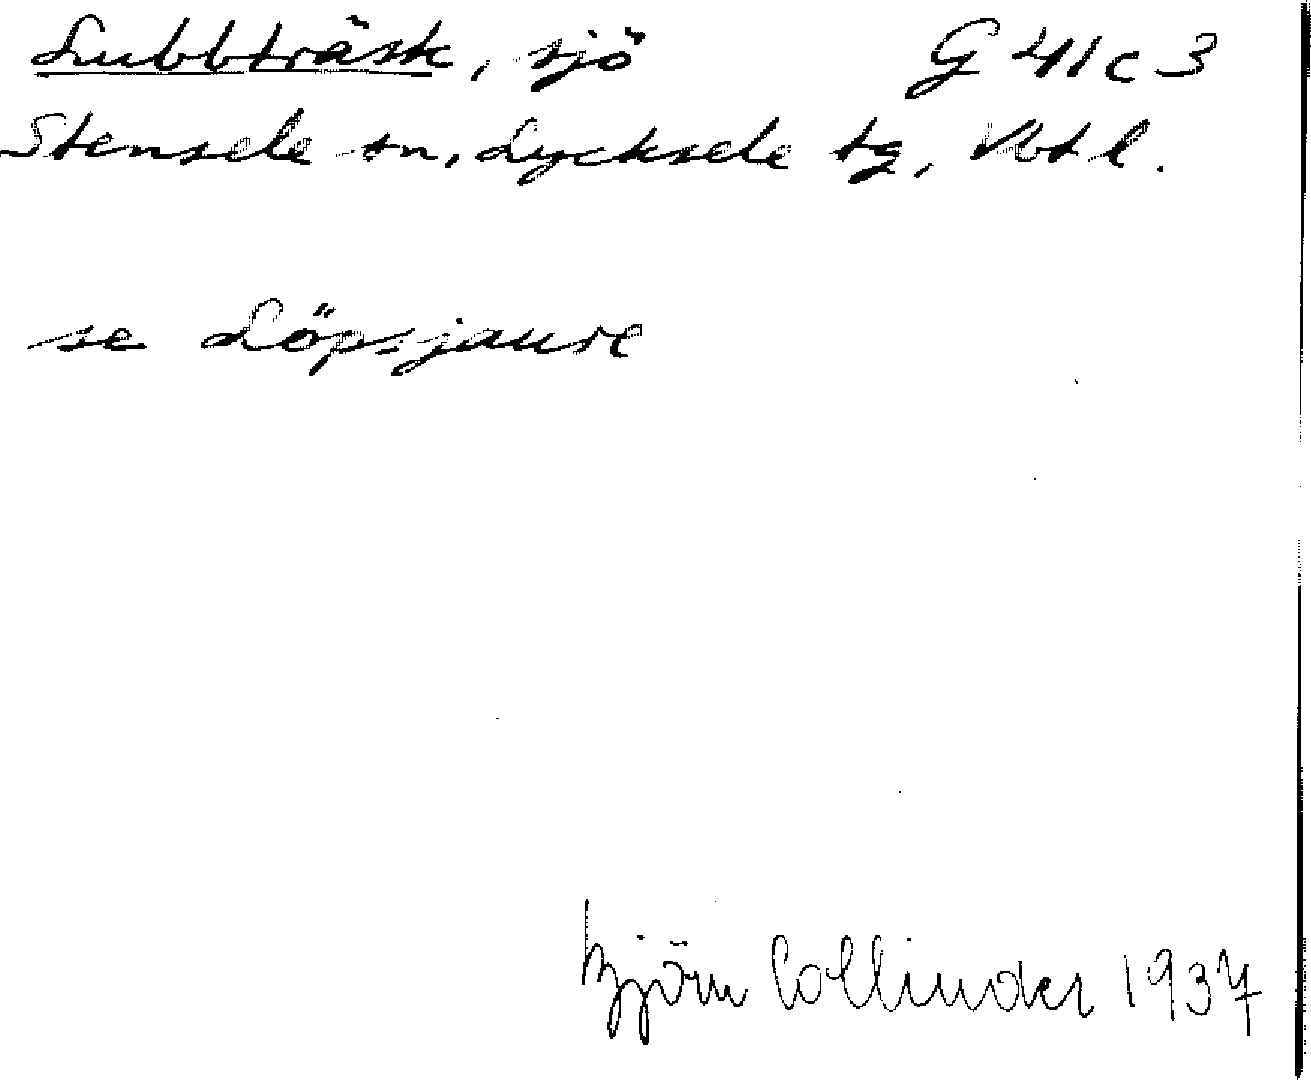 Lubbträsk, sjö G 41 c 3
Stensele sn, Lycksele tg, Vbtl.
se Löpsjaure
Björn Collinder 1937